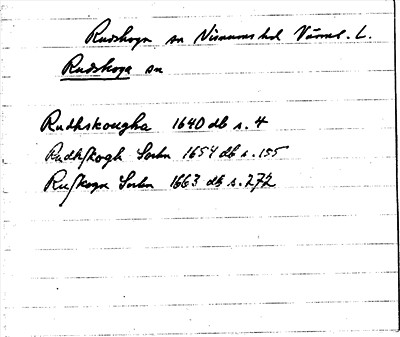 Rudskoga sn Visnums hd Värml. L.
Rudskoga sn
Rudhskougha 1640 db s. 4
Rudhskogh Sochn 1654 db s. 155
Ruskoga Sochn 1663 db s. 272